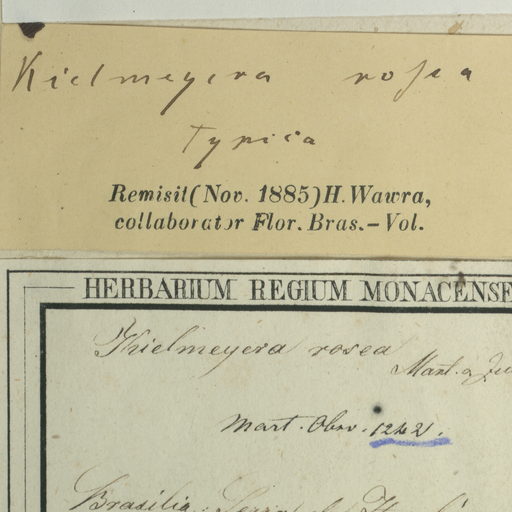 Kielmeyera rosea
typica
Remisit (Nov. 1885) H. Wawra,
collaborator Flor. Bras. – Vol.
HERBARIUM REGIUM MONACENSE
Kielmeyera rosea
Mart. &
Mart. Obsv. 1242.
Brasilia. Serra